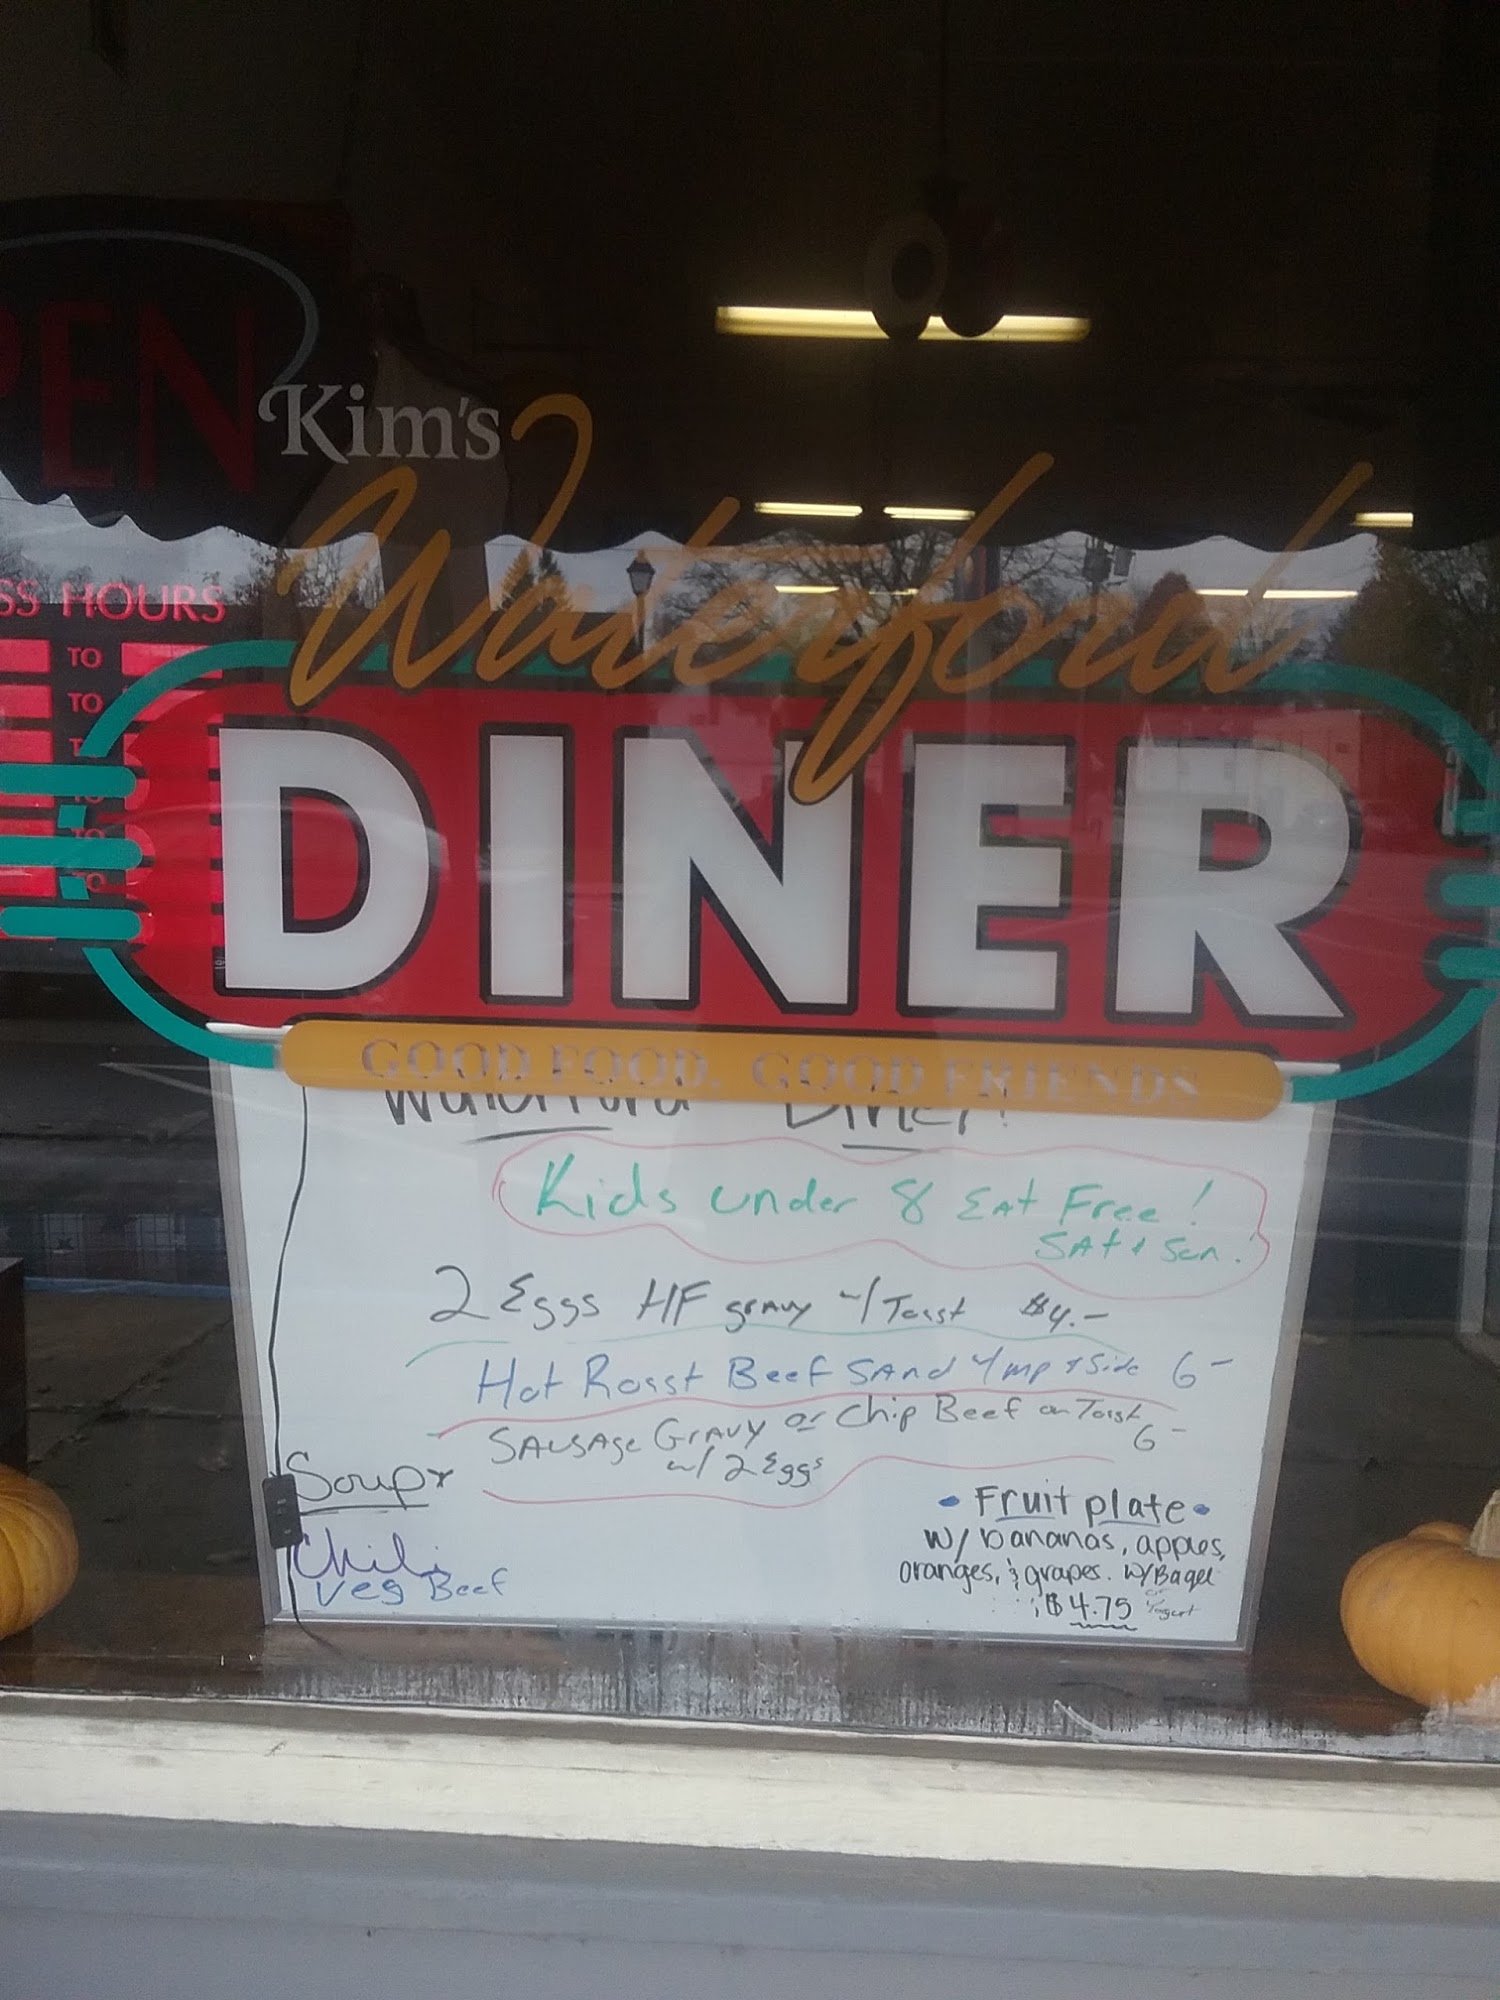 PEN
Kim's
Waterford
SS HOURS
TO
TO
TO
TO
TO
DINER
GOOD FOOD. GOOD FRIENDS
Waterford Diner!
Kids under 8 Eat Free!
SAt + Sun.
2 Eggs HF gravy w/ Toast $4.-
Hot Roast Beef SAnd w/ mp + Side 6-
SAUSAge GrAvy or Chip Beef on Toast
w/ 2 Eggs 6-
Soup
Chili
Veg Beef
• Fruit plate •
w/ bananas, apples,
oranges, & grapes. w/ Bagel
or
$4.75 Yogurt